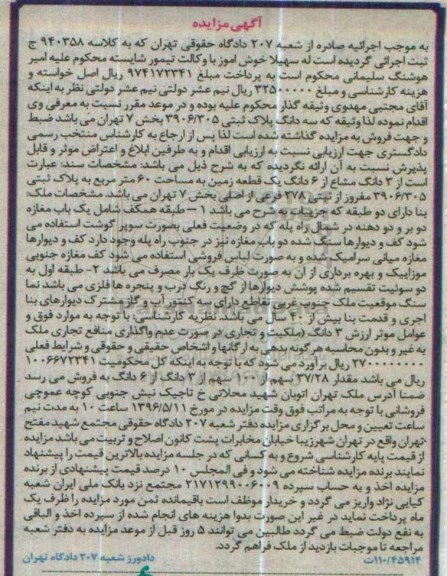 آگهی مزایده
به موجب اجرائیه صادره از شعبه ۲۰۷ دادگاه حقوقی تهران که به کلاسه ۹۴۰۳۵۸ ج
ثبت اجرائی گردیده است له سهیلا خوش آموز با وکالت تیمور شایسته محکوم علیه امیر
هوشنگ سلیمانی محکوم است به پرداخت مبلغ ۹۷۴۱۷۲۳۴۱ ریال اصل خواسته و
هزینه کارشناسی و مبلغ ۳۲۵۰۰۰۰۰ ریال نیم عشر دولتی نیم عشر دولتی نظر به اینکه
آقای مجتبی مهدوی وثیقه گذار محکوم علیه بوده و در موعد مقرر نسبت به معرفی وی
اقدام نموده لذا وثیقه که سه دانگ پلاک ثبتی ۳۹۰۶/۳۰۵ بخش ۷ تهران می باشد ضبط
و جهت فروش به مزایده گذاشته شده است لذا پس از ارجاع به کارشناس منتخب رسمی
دادگستری جهت ارزیابی نسبت به ارزیابی اقدام و به طرفین ابلاغ و اعتراض موثر و قابل
پذیرش نسبت به آن ارائه نگردیده که به شرح ذیل می باشد: مشخصات سند: عبارت
است از ۳ دانگ مشاع از ۶ دانگ یک قطعه زمین به مساحت ۶۰ متر مربع به پلاک ثبتی
۳۹۰۶/۳۰۵ مفروز از ثبتی ۳۷۸ فرعی از اصلی بخش ۷ تهران می باشد. مشخصات ملک:
بنا دارای دو طبقه که جزییات به شرح می باشد ۱ – طبقه همکف شامل یک باب مغازه
دو بر و دو دهنه در شمال راه پله که در وضعیت فعلی بصورت سوپر گوشت استفاده می
شود کف و دیوارها سنگ شده دو باب مغازه نیز در جنوب راه پله وجود دارد کف و دیوارها
مغازه میانی سرامیک شده و به صورت لباس فروشی استفاده می شود کف مغازه جنوبی
موزاییک و بهره برداری از آن به صورت ظرف یک بار مصرف می باشد ۲- طبقه اول به
دو سوئیت تقسیم شده پوشش دیوارها از گچ و رنگ درب و پنجره ها فلزی می باشد نما
سنگ موقعیت ملک جنوب غربی تقاطع دارای سه کنتور آب و گاز مشترک دیوارهای بنا
آجری و قدمت بنا بیش از ۴۰ سال می باشد. نظریه کارشناسی: با توجه به موارد فوق و
عوامل موثر ارزش ۳ دانگ (ملکیت و تجاری در صورت عدم واگذاری منافع تجاری ملک
به غیر و بدون محاسبه هرگونه بدهی به ارگانها و اشخاص حقیقی و حقوقی و شرایط فعلی
ریال برآورد می شود که با توجه به اینکه کل محکومیت ۱۰۰۶۶۷۲۳۴۱
ریال می باشد مقدار ۳۷/۲۸ سهم از ۱۰۰ سهم از ۳ دانگ از ۶ دانگ به فروش می رسد
ضمنا آدرس ملک تهران اتوبان شهید محلاتی خ تاجیک نبش جنوبی کوچه عموچی
فروشانی با توجه به مراتب فوق وقت مزایده در مورخ ۱۳۹۶/۵/۱۱ ساعت ۱۰ به مدت نیم
ساعت تعیین و محل برگزاری مزایده دفتر شعبه ۲۰۷ دادگاه حقوقی مجتمع شهید مفتح
تهران واقع در تهران شهرزیبا خیابان مخابرات پشت کانون اصلاح و تربیت می باشد مزایده
از قیمت پایه کارشناسی شروع و به کسانی که در جلسه مزایده بالاترین قیمت را پیشنهاد
نمایند برنده مزایده شناخته می شود و فی المجلس ۱۰ درصد قیمت پیشنهادی از برنده
مزایده اخذ و به حساب سپرده ۲۱۷۱۲۹۹۰۰۶۰۰۹ مجتمع نزد بانک ملی ایران شعبه
کیایی نژاد واریز می گردد و خریدار موظف است باقیمانده ثمن مورد مزایده را ظرف یک
ماه پرداخت نماید در غیر این صورت بدوا هزینه های انجام شده از سپرده اخذ و الباقی
به نفع دولت ضبط می گردد طالبین می توانند ۵ روز قبل از موعد مزایده به دفتر شعبه
مراجعه تا موجبات بازدید از ملک فراهم گردد.
۱۱۰/۴۵۹۱۴ت دادورز شعبه ۲۰۷ دادگاه تهران